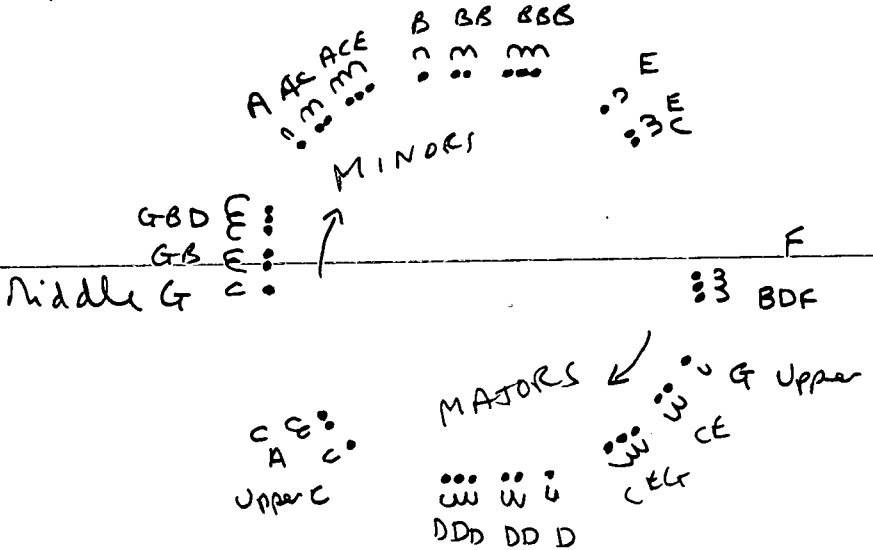 B BB BBB
A AC ACE
E
E
C
MINORS
GBD
GB
F
Middle G
BDF
MAJORS
G Upper
CE
CEG
C
A
Upper C
DDD DD D